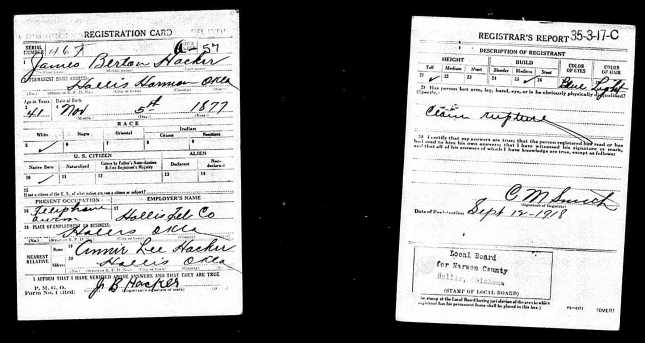 REGISTRATION CARD
SERIAL NUMBER
James Berton Hacker
PERMANENT HOME ADDRESS:
Hollis Harmon Okla
Age in Years
Date of Birth
41 Nov 5th 1877
RACE
White
Negro
Oriental
Indian
Citizen
U. S. CITIZEN
ALIEN
Native Born
Naturalized
Citizen by Father's Naturalization
Before Registrant's Majority
Declarant
Non-declarant
If not a citizen of the U. S., of what nation are you a citizen or subject?
PRESENT OCCUPATION
EMPLOYER'S NAME
Telephone
Hollis Tel Co
PLACE OF EMPLOYMENT OR BUSINESS:
Hollis Okla
NEAREST RELATIVE
Name
Lee Hacker
Address
Hollis Okla
I AFFIRM THAT I HAVE VERIFIED ABOVE ANSWERS AND THAT THEY ARE TRUE
P. M. G. O.
J B Hacker
REGISTRAR'S REPORT 35-3-17-C
DESCRIPTION OF REGISTRANT
HEIGHT
BUILD
COLOR OF EYES
COLOR OF HAIR
Tall
Medium
Short
Slender
Medium
Stout
21
22
23
24
25
26
Blue
Light
Has person lost arm, leg, hand, eye, or is he obviously physically disqualified?
(Specify.)
Claim rupture
I certify that my answers are true; that the person registered has read or has
had read to him his own answers; that I have witnessed his signature or mark,
and that all of his answers of which I have knowledge are true, except as follows:
C M Smith
Date of Registration Sept 12-1918
Local Board
for Harmon County
Hollis, Oklahoma
(STAMP OF LOCAL BOARD)